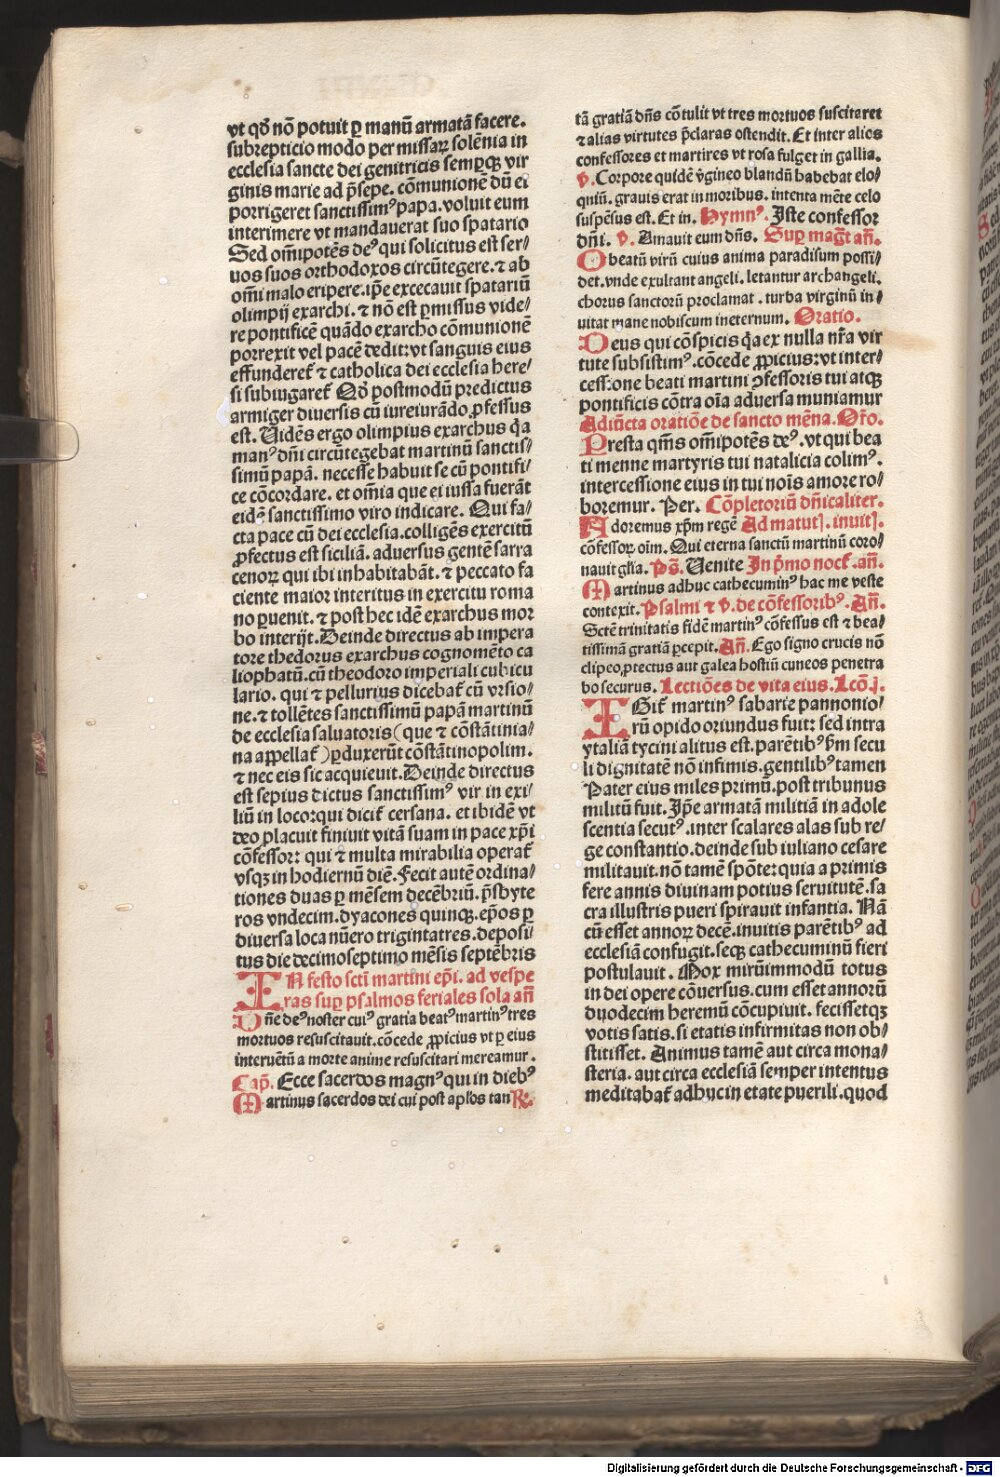 vt qď nō potuit ꝑ manū armatā facere.
subrepticio modo per missaꝝ solēnia in
ecclesia sancte dei genitricis sempqꝫ vir
ginis marie ad p̄sepe. cōmunionē dū ei
porrigeret sanctissimꝰ papa. voluit eum
interimere vt mandauerat suo spatario
Sed om̄ipotēs deꝰ qui solicitus est ser⸗
uos suos orthodoxos circūtegere. ⁊ ab
om̄i malo eripere. ip̄e excecauit spatariū
olimpij exarchi. ⁊ nō est ꝑmissus vide⸗
re pontificē quādo exarcho cōmunionē
porrexit vel pacē dedit: vt sanguis eius
effunderet̄ ⁊ catholica dei ecclesia here⸗
si subiugaret̄ Qď postmodū predictus
armiger diuersis cū iureiurādo ꝓfessus
est. Uidēs ergo olimpius exarchus q̄a
manꝰ dn̄i circūtegebat martinū sanctis⸗
simū papā. necesse habuit se cū pontifi⸗
ce cōcordare. et om̄ia que ei iussa fuerāt
eidē sanctissimo viro indicare. Qui fa⸗
cta pace cū dei ecclesia. colligēs exercitū
ꝓfectus est siciliā. aduersus gentē sarra
cenoꝝ qui ibi inhabitabāt. ⁊ peccato fa
ciente maior interitus in exercitu roma
no ꝑuenit. ⁊ post hec idē exarchus mor
bo interijt. Deinde directus ab impera
tore thedorus exarchus cognomēto ca
liophatū. cū theodoro imperiali cubicu
lario. qui ⁊ pellurius dicebat̄ cū vrsio⸗
ne. ⁊ tollētes sanctissimū papā martinū
de ecclesia saluatoris (que ⁊ cōstātinia⸗
na appellat̄) ꝑduxerūt cōstātinopolim.
⁊ nec eis sic acquieuit. Deinde directus
est sepius dictus sanctissimꝰ vir in exi⸗
liū in locorqui dicit̄ cersana. et ibidē vt
deo placuit finiuit vitā suam in pace xp̄i
cōfessor: qui ⁊ multa mirabilia operat̄
vsqꝫ in hodiernū diē. Fecit autē ordina⸗
tiones duas ꝑ mēsem decēbriū. p̄sbyte
ros vndecim. dyacones quinqꝫ. ep̄os ꝑ
diuersa loca nūero trigintatres. deposi⸗
tus die decimoseptimo mēsis septēbris
IN festo scti martini ep̄i. ad vespe
ras suꝑ psalmos feriales sola an̄
Dn̄e deꝰ noster cuiꝰ gratia beatꝰ martinꝰ tres
mortuos resuscitauit. cōcede ꝓpicius vt ꝑ eius
interuētū a morte anime resuscitari mereamur.
Cap̄. Ecce sacerdos magnꝰ qui in diebꝰ
Martinus sacerdos dei cui post apl̄os tan ℟.
tā gratiā dn̄s cōtulit vt tres mortuos suscitaret
⁊ alias virtutes p̄claras ostendit. Et inter alios
confessores et martires vt rosa fulget in gallia.
℣. Corpore quidē v̄gineo blandū habebat elo⸗
quiū. grauis erat in moribus. intenta mēte celo
suspēsus est. Et in. Hymnꝰ. Iste confessor
dn̄i. ℣. Amauit eum dn̄s. Suꝑ mag̅t an̄.
O beatū virū cuius anima paradisum possi⸗
det. vnde exultant angeli. letantur archangeli.
chorus sanctorū proclamat. turba virginū in⸗
uitat mane nobiscum ineternum. Oratio.
Deus qui cōspicis q̄a ex nulla nr̄a vir
tute subsistimꝰ. cōcede ꝓpicius: vt inter⸗
cess:one beati martini ꝯfessoris tui atqꝫ
pontificis cōtra oīa aduersa muniamur
Adiūcta oratiōe de sancto mēna. Or̄o.
Presta qm̄s om̄ipotēs deꝰ. vt qui bea
ti menne martyris tui natalicia colimꝰ.
intercessione eius in tui noīs amore ro⸗
boremur. Per. Cōpletoriū dn̄icaliter.
Adoremus xp̄m regē Ad matutꝭ. inuitꝭ.
cōfessoꝝ oīm. Qui eterna sanctū martinū coro⸗
nauit gl̄ia. Ps̄. Uenite In p̄mo noct̄. an̄.
Martinus adhuc cathecuminꝰ hac me veste
contexit. Psalmi ⁊ ℣. de cōfessoribꝰ. An̄.
Sctē trinitatis fidē martinꝰ cōfessus est ⁊ bea⸗
tissimā gratiā ꝑcepit. An̄. Ego signo crucis nō
clipeo ꝓtectus aut galea hostiū cuneos penetra
bo securus. Lectiōes de vita eius. Lcō. j.
IGit̄ martinꝰ sabarie pannonio⸗
rū opido oriundus fuit: sed intra
ytaliā tycini alitus est. parētibꝰ ẜm secu
li dignitatē nō infimis. gentilibꝰ tamen
Pater eius miles primū. post tribunus
militū fuit. Ip̄e armatā militiā in adole
scentia secutꝰ. inter scalares alas sub re⸗
ge constantio. deinde sub iuliano cesare
militauit. nō tamē spōte: quia a primis
fere annis diuinam potius seruitutē. sa
cra illustris pueri spirauit infantia. Nā
cū esset annoꝝ decē. inuitis parētibꝰ ad
ecclesiā confugit. seqꝫ cathecuminū fieri
postulauit. Mox mirūimmodū totus
in dei opere cōuersus. cum esset annorū
duodecim heremū cōcupiuit. fecissetqꝫ
votis satis. si etatis infirmitas non ob⸗
stitisset. Animus tamē aut circa mona⸗
steria. aut circa ecclesiā semper intentus
meditabat̄ adhuc in etate puerili. quod
Digitalisierung gefördert durch die Deutsche Forschungsgemeinschaft - DFG